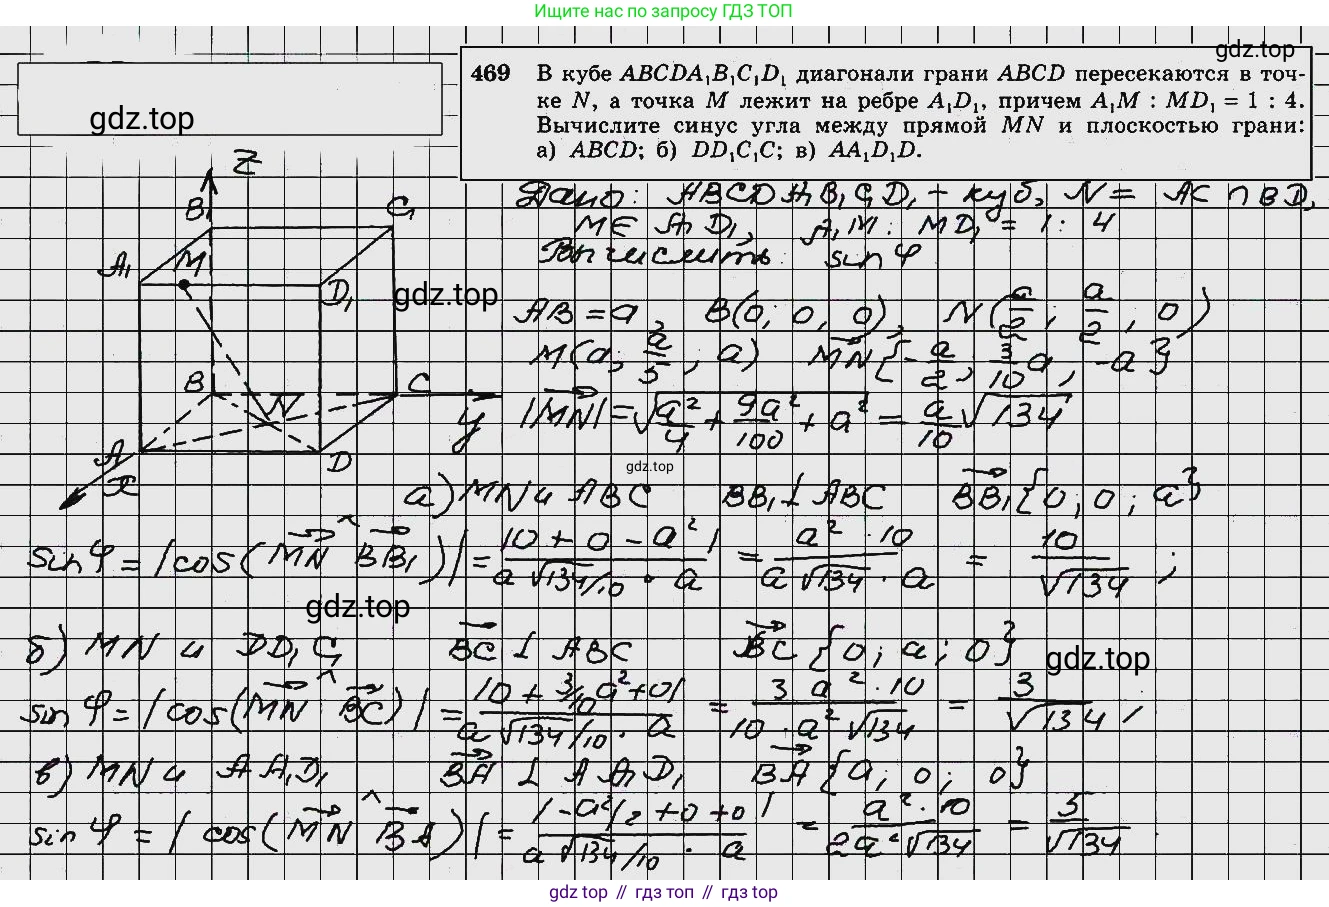 Ищите нас по запросу ГДЗ ТОП
gdz.top
gdz.top
469 В кубе ABCDA₁B₁C₁D₁ диагонали грани ABCD пересекаются в точ-
ке N, а точка M лежит на ребре A₁D₁, причем A₁M : MD₁ = 1 : 4.
Вычислите синус угла между прямой MN и плоскостью грани:
а) ABCD; б) DD₁C₁C; в) AA₁D₁D.
Дано: ABCDA₁B₁C₁D₁ – куб, N = AC ∩ BD,
M ∈ A₁D₁, A₁M : MD₁ = 1 : 4
Вычислить: sin φ
Z
B₁
C₁
A₁
M
D₁
gdz.top
B
C
N
y
A
D
x
AB = a, B(0; 0; 0), N(a/2; a/2; 0)
M(a; a/5; a) MN{-a/2, 3/10 a, -a}
|MN| = √(a²/4 + 9a²/100 + a²) = a/10 √134
gdz.top
а) MN и ABC BB₁ ⊥ ABC BB₁{0; 0; a}
sin φ = |cos(MN ^ BB₁)| = |0 + 0 - a²| / (a√134/10 · a) = a² · 10 / (a√134 · a) = 10/√134;
gdz.top
б) MN и DD₁C₁ BC ⊥ ABC BC{0; a; 0}
gdz.top
sin φ = |cos(MN ^ BC)| = |0 + 3/10 a² + 0| / (a√134/10 · a) = 3a² · 10 / (10 · a²√134) = 3/√134,
в) MN и AA₁D₁ BA ⊥ AA₁D₁ BA{a; 0; 0}
sin φ = |cos(MN ^ BA)| = |-a²/2 + 0 + 0| / (a√134/10 · a) = a² · 10 / (2a²√134) = 5/√134
gdz top // гдз топ // gdz top